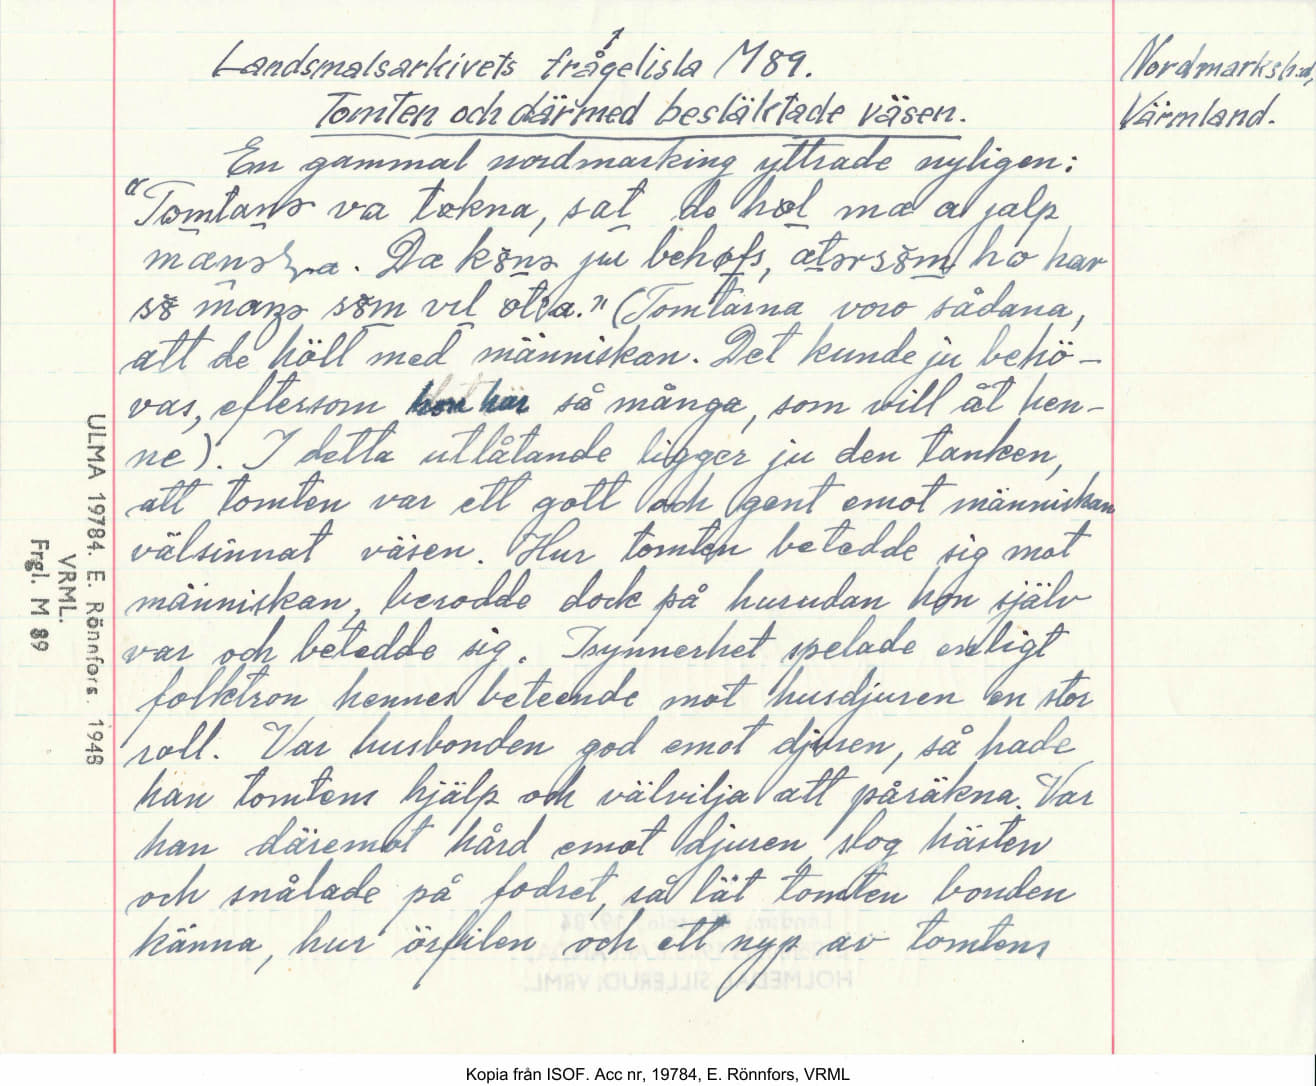 1
Landsmalsarkivets frågelista M 89.
Nordmarks hd,
Värmland.
Tomten och därmed besläktade väsen.
En gammal nordmarking yttrade nyligen:
va tokna, sat də høl mæ a jalp
Dæ ju ho har
vil
(Tomtarna voro sådana,
att de höllt med människan. Det kunde ju behö-
vas, eftersom hon här så många, som will åt hen-
ne). I detta utlåtande ligger ju den tanken,
att tomten var ett gott och gent emot människan
välsinnat väsen. Hur tomten betedde sig mot
människan, berodde dock på hurudan hon själv
var och betedde sig. Isynnerhet spelade enligt
folktron hennes beteende mot husdjuren en stor
roll. Var husbonden god emot djuren, så hade
han tomtens hjälp och välvilja att påräkna. Var
han däremot hård emot djuren, slog hästen
och snålade på fodret, så lät tomten bonden
känna, hur örfilen och ett nyp av tomtens
ULMA 19784. E. Rönnfors. 1948
VRML.
Frgl. M 89
HOLMEDAL, SILLERUD; VRML.
Kopia från ISOF. Acc nr, 19784, E. Rönnfors, VRML